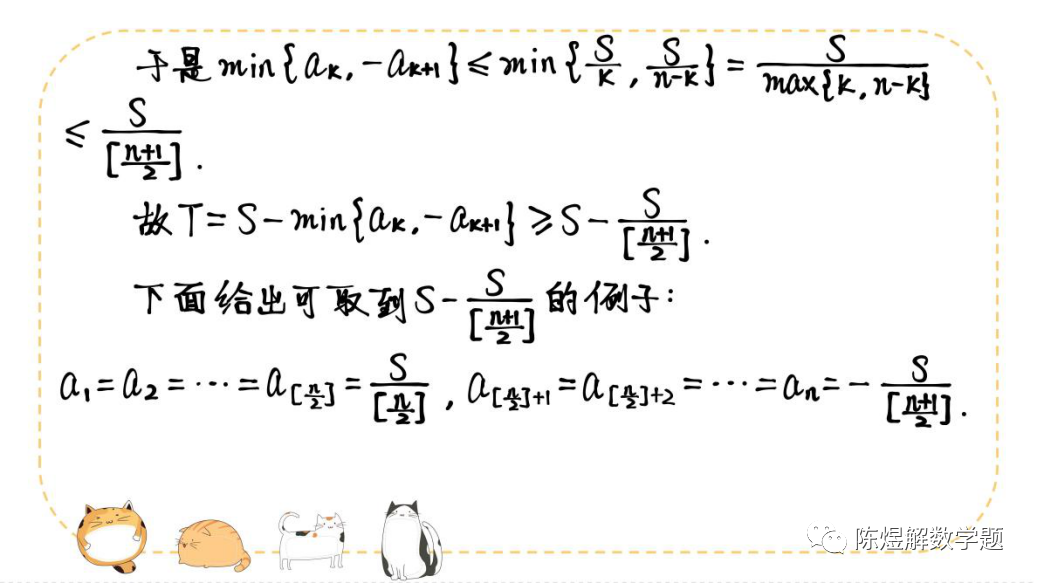 于是 min{aₖ, -aₖ₊₁} ≤ min{S/k, S/(n-k)} = S/max{k, n-k}
≤ S/[(n+1)/2].
故 T = S - min{aₖ, -aₖ₊₁} ≥ S - S/[(n+1)/2].
下面给出可取到 S - S/[(n+1)/2] 的例子:
a₁ = a₂ = ⋯ = a_{[n/2]} = S/[n/2], a_{[n/2]+1} = a_{[n/2]+2} = ⋯ = aₙ = -S/[(n+1)/2].
陈煜解数学题